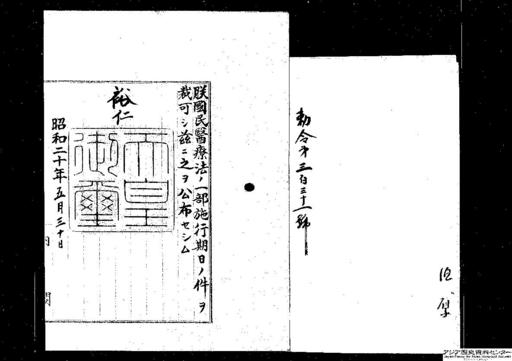 勅令第三百三十一號
朕國民醫療法ノ一部施行期日ノ件ヲ
裁可シ茲ニ之ヲ公布セシム
裕仁
天皇御璽
昭和二十年五月三十日
内閣
アジア歴史資料センター